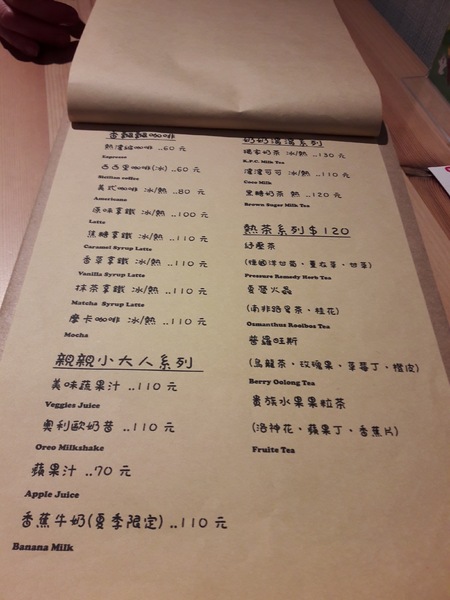 香醇醇咖啡
熱濃縮咖啡 ..60 元
Espresso
西西里咖啡(冰) ..60 元
Sicilian coffee
美式咖啡 冰/熱 ..80 元
Americano
原味拿鐵 冰/熱 ..100 元
Latte
焦糖拿鐵 冰/熱 ..110 元
Caramel Syrup Latte
香草拿鐵 冰/熱 ..110 元
Vanilla Syrup Latte
抹茶拿鐵 冰/熱 ..110 元
Matcha Syrup Latte
摩卡咖啡 冰/熱 ..110 元
Mocha
親親小大人系列
美味蔬果汁 ..110 元
Veggies Juice
奧利歐奶昔 ..110 元
Oreo Milkshake
蘋果汁 ..70 元
Apple Juice
香蕉牛奶(夏季限定) ..110 元
Banana Milk
奶奶濃濃系列
楊家奶茶 冰/熱 ..130 元
K.P.C. Milk Tea
濃濃可可 冰/熱 ..110 元
Coco Milk
黑糖奶茶 熱 ..120 元
Brown Sugar Milk Tea
熱茶系列$120
紓壓茶
(德國洋甘菊、薰衣草、甘草)
Pressure Remedy Herb Tea
(南非路易茶、桂花)
Osmanthus Rooibus Tea
普羅旺斯
(烏龍茶、玫瑰果、草莓丁、橙皮)
Berry Oolong Tea
貴族水果果粒茶
(洛神花、蘋果丁、香蕉片)
Fruite Tea